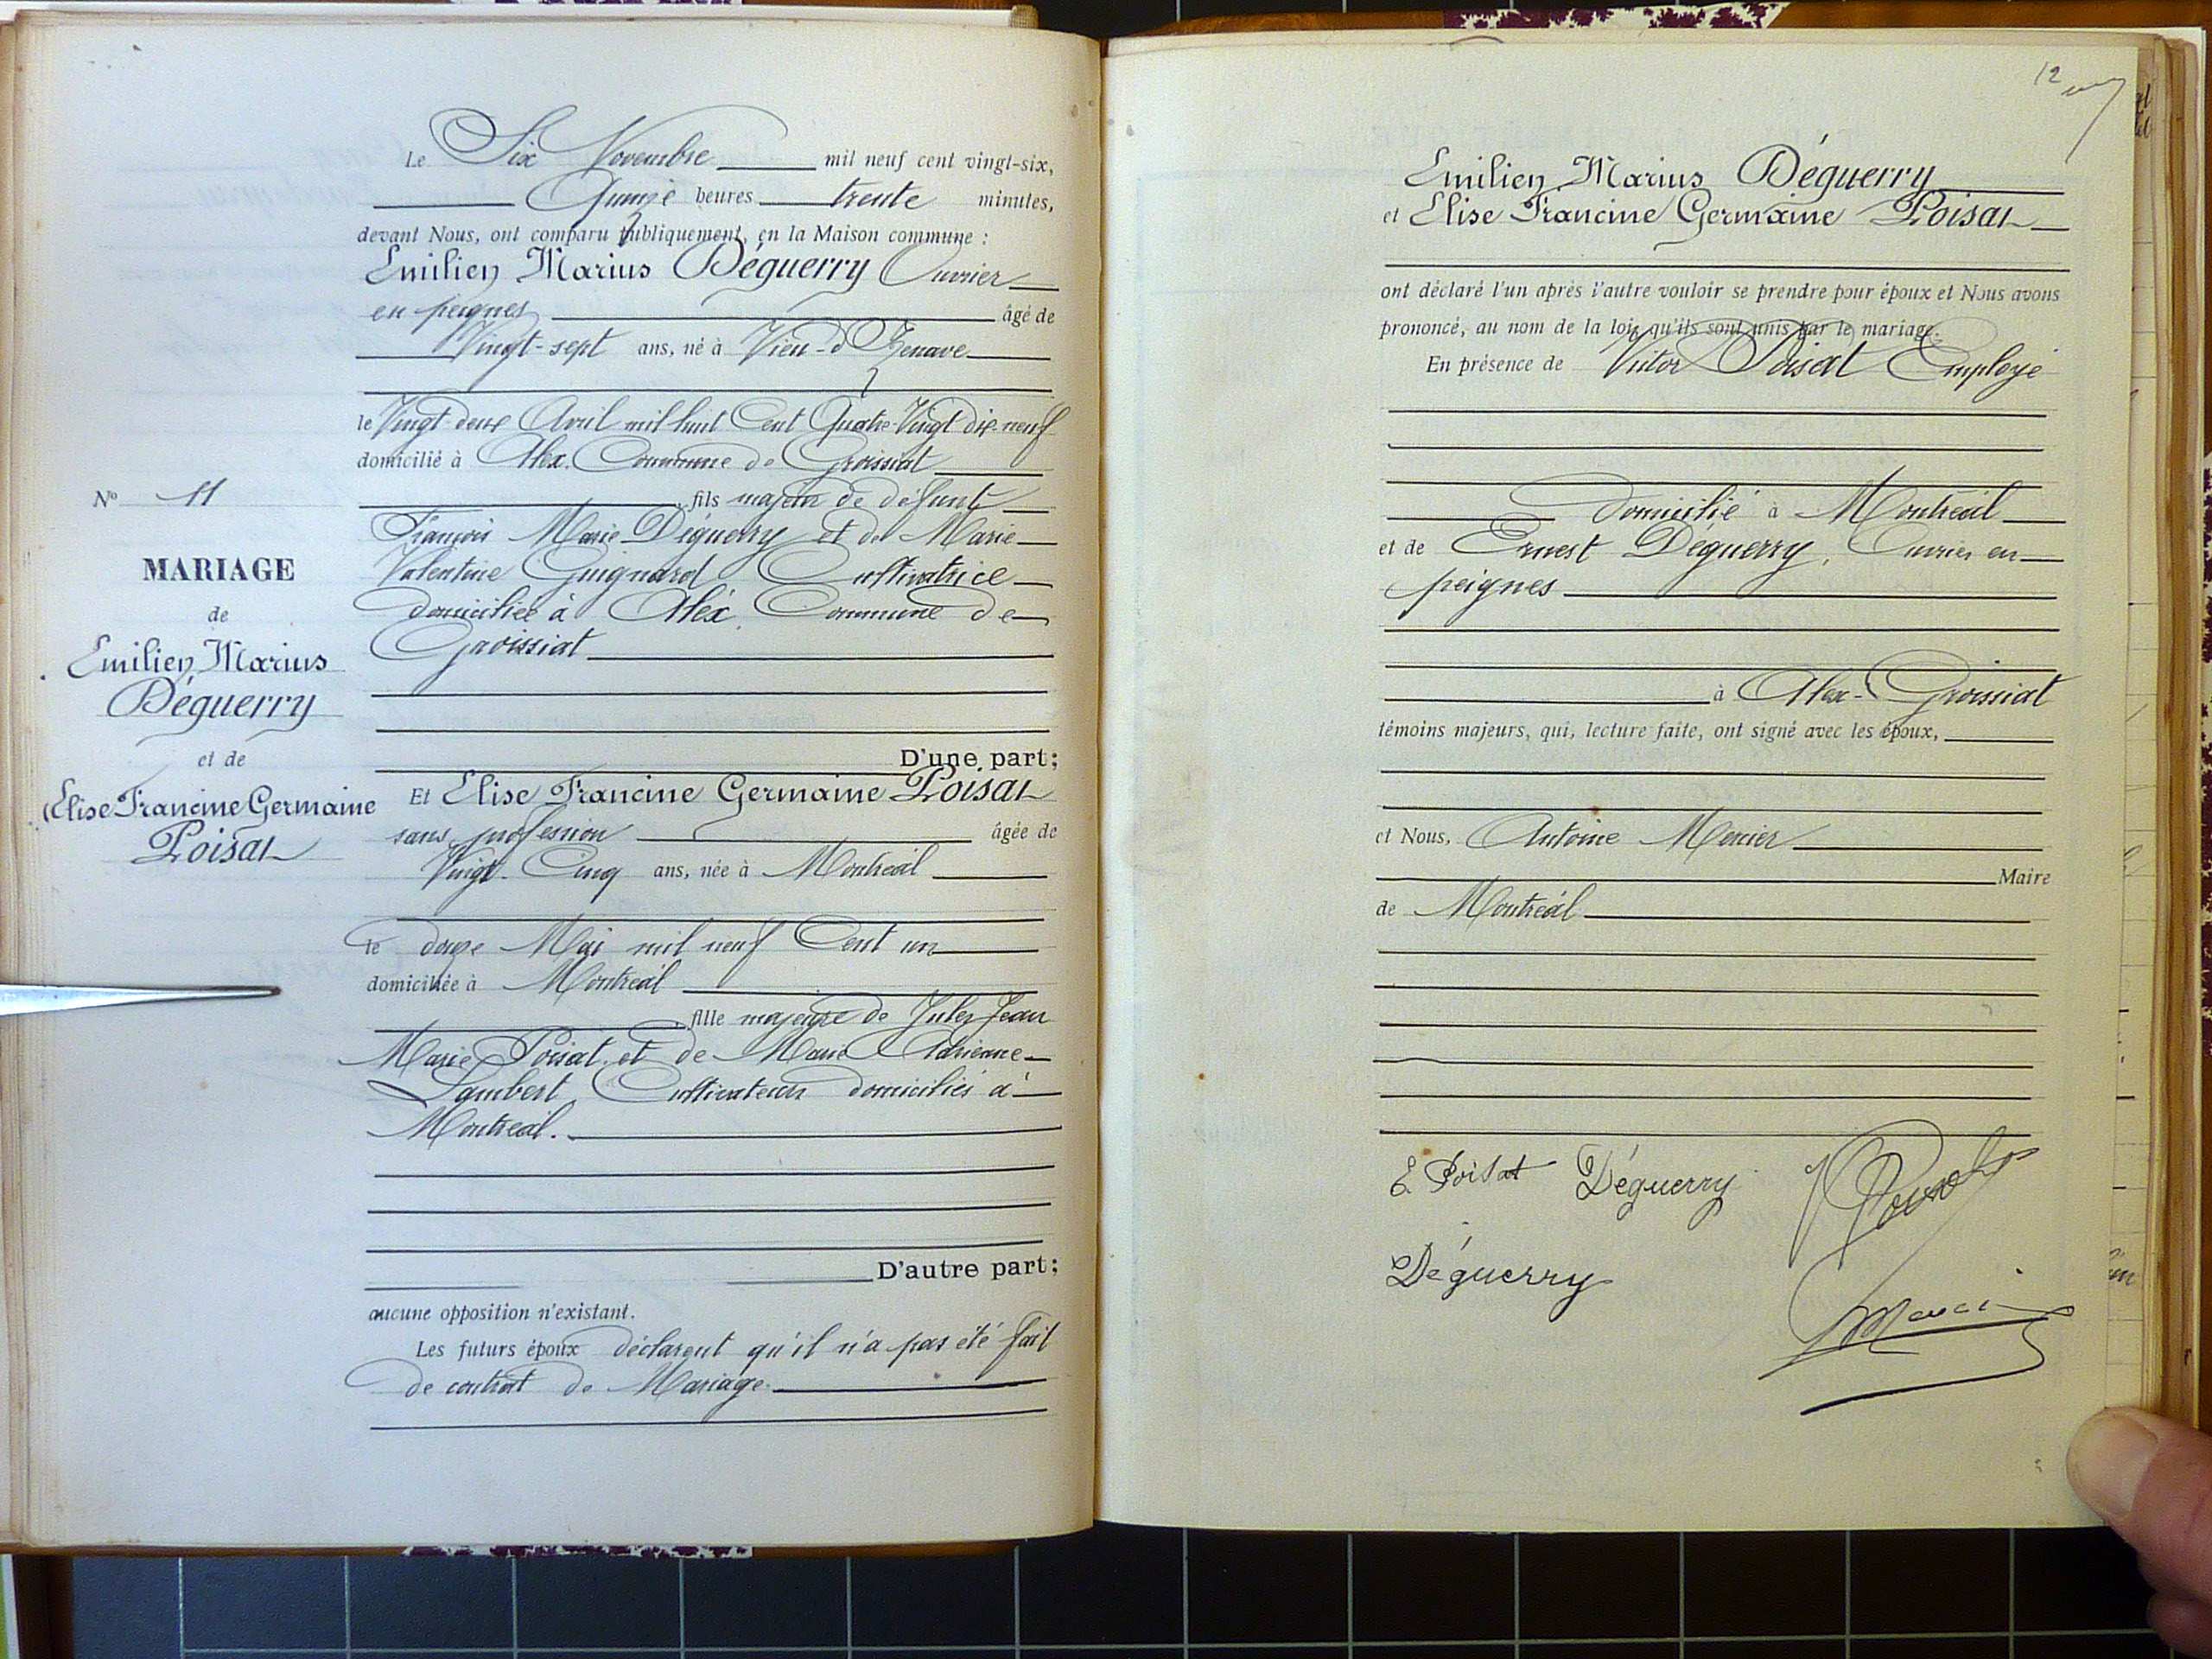 Le Six Novembre mil neuf cent vingt-six,
Quinze heures trente minutes,
devant Nous, ont comparu publiquement, en la Maison commune :
Emilien Marius Déguerry Ouvrier
en peignes âgé de
Vingt-sept ans, né à Vieu-d'Izenave
le Vingt-deux Avril mil huit Cent Quatre-Vingt dix-neuf
domicilié à Alex. Commune de Groissiat
fils majeur de défunt
François Marie Déguerry et de Marie
Valentine Guignard Cultivatrice
domiciliée à Aléx Commune de
Groissiat
D'une part;
Et Elise Francine Germaine Poisat
sans profession âgée de
Vingt-Cinq ans, née à Montréal
le douze Mai mil neuf Cent un
domiciliée à Montréal
fille majeure de Jules Jean
Marie Poisat et de Marie Adrienne
Lambert Cultivateurs domiciliés à
Montréal.
D'autre part;
aucune opposition n'existant.
Les futurs époux déclarent qu'il n'a pas été fait
de contrat de Mariage.
N° 11
MARIAGE
de
Emilien Marius
Déguerry
et de
Elise Francine Germaine
Poisat
12
Emilien Marius Déguerry
et Elise Francine Germaine Poisat
ont déclaré l'un après l'autre vouloir se prendre pour époux et Nous avons
prononcé, au nom de la loi, qu'ils sont unis par le mariage.
En présence de Victor Poisat Employé
domicilié à Montréal
et de Ernest Déguerry, Ouvrier en
peignes
à Alex-Groissiat
témoins majeurs, qui, lecture faite, ont signé avec les époux,
et Nous, Antoine Mercier
Maire
de Montréal
E. Poisat Déguerry
Déguerry